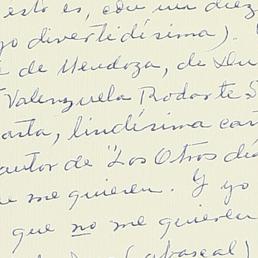 esto es, con un diez
yo divertidísima).
de Mendoza, de Du
Valenzuela Rodarte S
arta, lindísima car
autor de "Los Otros dí
e me quieren. Y yo
que no me quieren
(abascal)